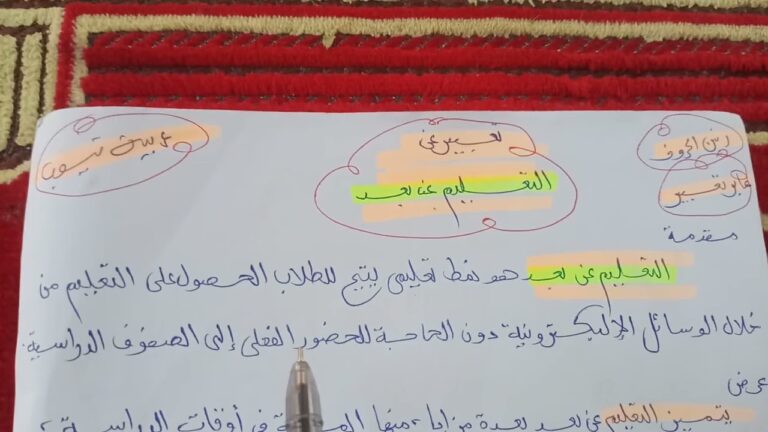 رنين الحروف
عابر تعبير
تعبير عن
التعليم عن بعد
عربية تيسير
مقدمة
التعليم عن بعد هو نمط تعليمي يتيح للطلاب الحصول على التعليم من
خلال الوسائل الإلكترونية دون الحاجة للحضور الفعلي إلى الصفوف الدراسية.
عرض
يتميز التعليم عن بعد بعدة مزايا، منها في أوقات الدراسة،